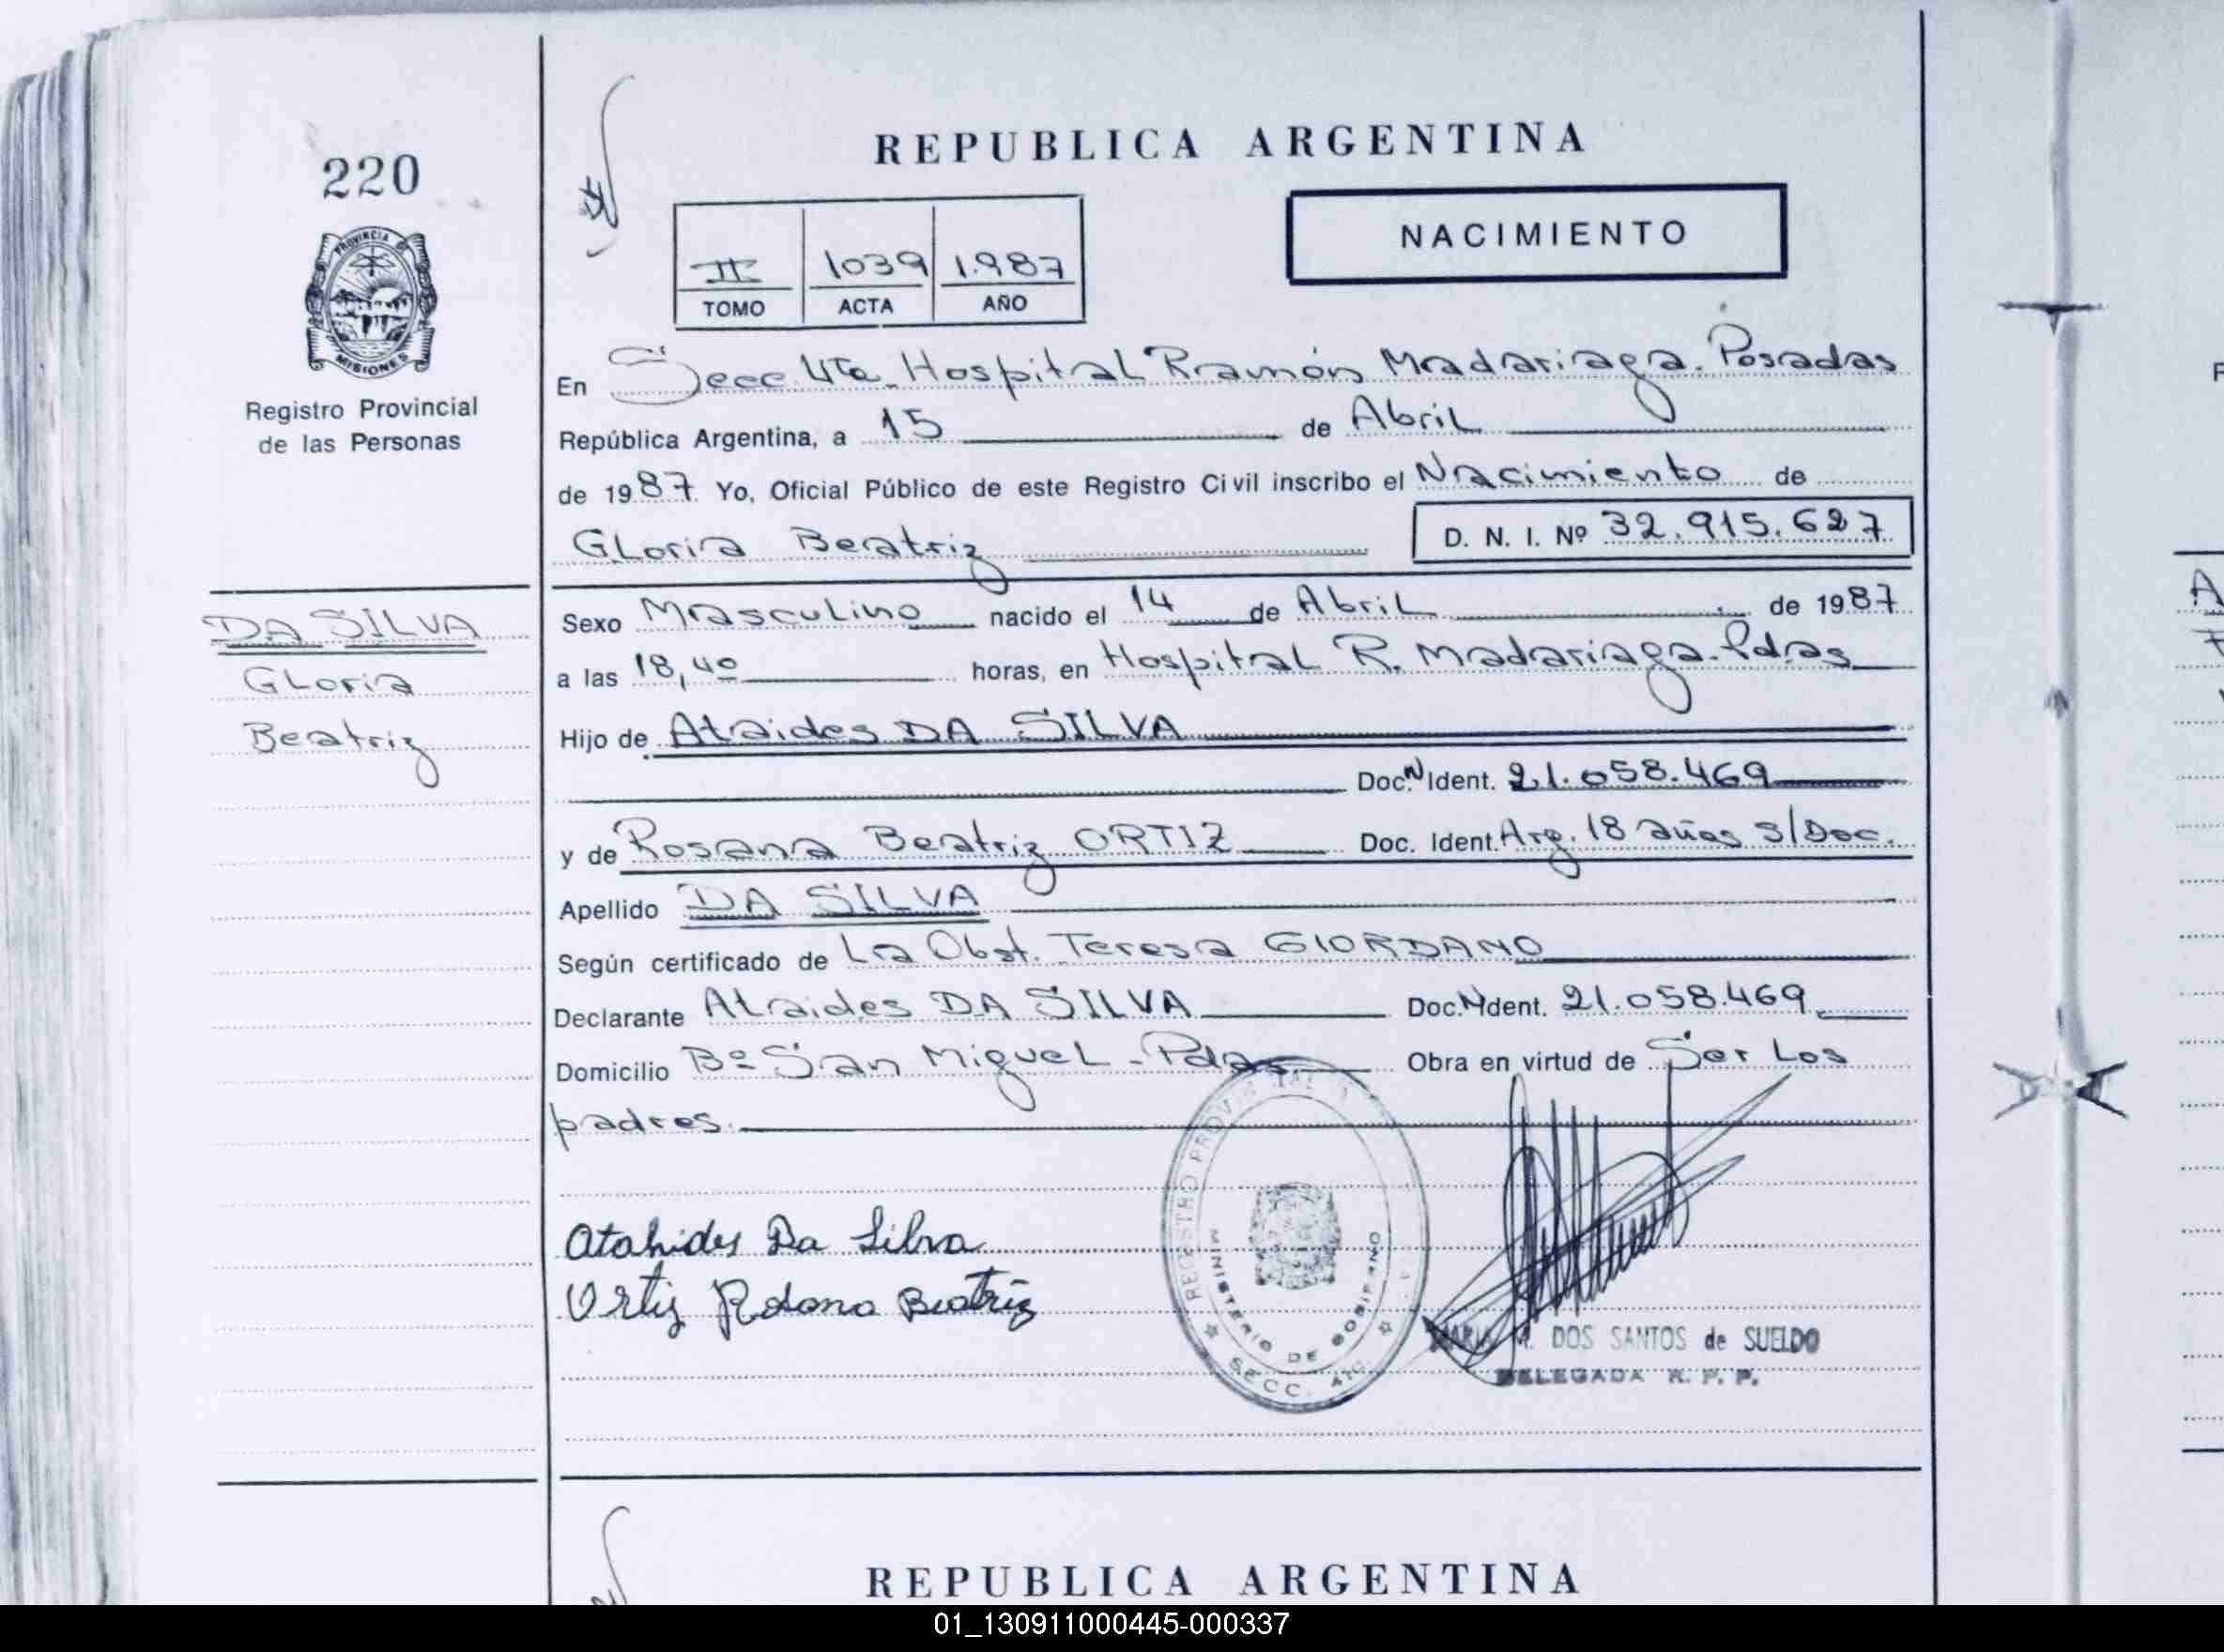 220
PROVINCIA
MISIONES
Registro Provincial
de las Personas
REPUBLICA ARGENTINA
NACIMIENTO
II 1039 1.987
TOMO ACTA AÑO
En Secc 4ta. Hospital Ramón Madariaga. Posadas
República Argentina, a 15 de Abril
de 1987 Yo, Oficial Público de este Registro Civil inscribo el Nacimiento de
Gloria Beatriz D. N. I. Nº 32.915.627
DA SILVA
Gloria
Beatriz
Sexo Masculino nacido el 14 de Abril de 1987
a las 18,40 horas, en Hospital R. Madariaga. Pdas
Hijo de Ataides DA SILVA
Doc. N Ident. 21.058.469
y de Rosana Beatriz ORTIZ Doc. Ident. Arg. 18 años S/Doc.
Apellido DA SILVA
Según certificado de La Obst. Teresa GIORDANO
Declarante Ataides DA SILVA Doc. N Ident. 21.058.469
Domicilio Bº San Miguel - Pdas Obra en virtud de Ser Los
padres.
Atahides Da Silva
Ortiz Rosana Beatriz
REGISTRO PROVINCIAL
MINISTERIO DE GOBIERNO
SECC. 4TA
MARIA DOS SANTOS de SUELDO
DELEGADA R. P. P.
REPUBLICA ARGENTINA
01_130911000445-000337